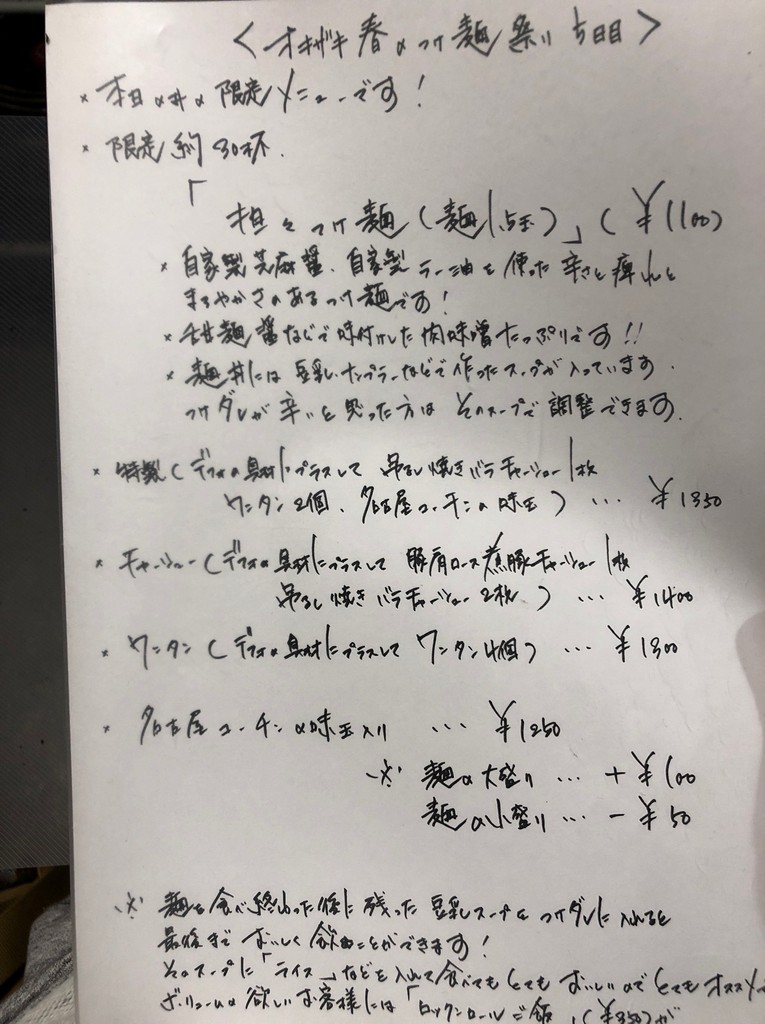 <オキザキ 春のつけ麺祭り 5日目>
* 本日のみの限定メニューです!
* 限定約30杯.
「担々つけ麺(麺1.5玉)」(¥1100)
* 自家製芝麻醤、自家製ラー油を使った辛さと痺れと
まろやかさのあるつけ麺です!
* 甜麺醤などで味付けした肉味噌たっぷりです!!
* 麺丼には豆乳・ナンプラーなどで作ったスープが入っています.
つけダレが辛いと思った方はそのスープで調整できます.
* 特製(デフォの具材にプラスして 吊るし焼きバラチャーシュー1枚
ワンタン2個、名古屋コーチンの味玉)… ¥1350
* チャーシュー(デフォの具材にプラスして 豚肩ロース煮豚チャーシュー1枚
吊るし焼きバラチャーシュー2枚)… ¥1400
* ワンタン(デフォの具材にプラスして ワンタン4個)… ¥1300
* 名古屋コーチンの味玉入り … ¥1250
※ 麺の大盛り … +¥100
麺の小盛り … -¥50
※ 麺を食べ終わった後に残った豆乳スープをつけダレに入れると
最後までおいしく飲むことができます!
そのスープに「ライス」などを入れて食べてもとてもおいしいのでとてもオススメ
ボリュームの欲しいお客様には「ロックンロールご飯」(¥350)が